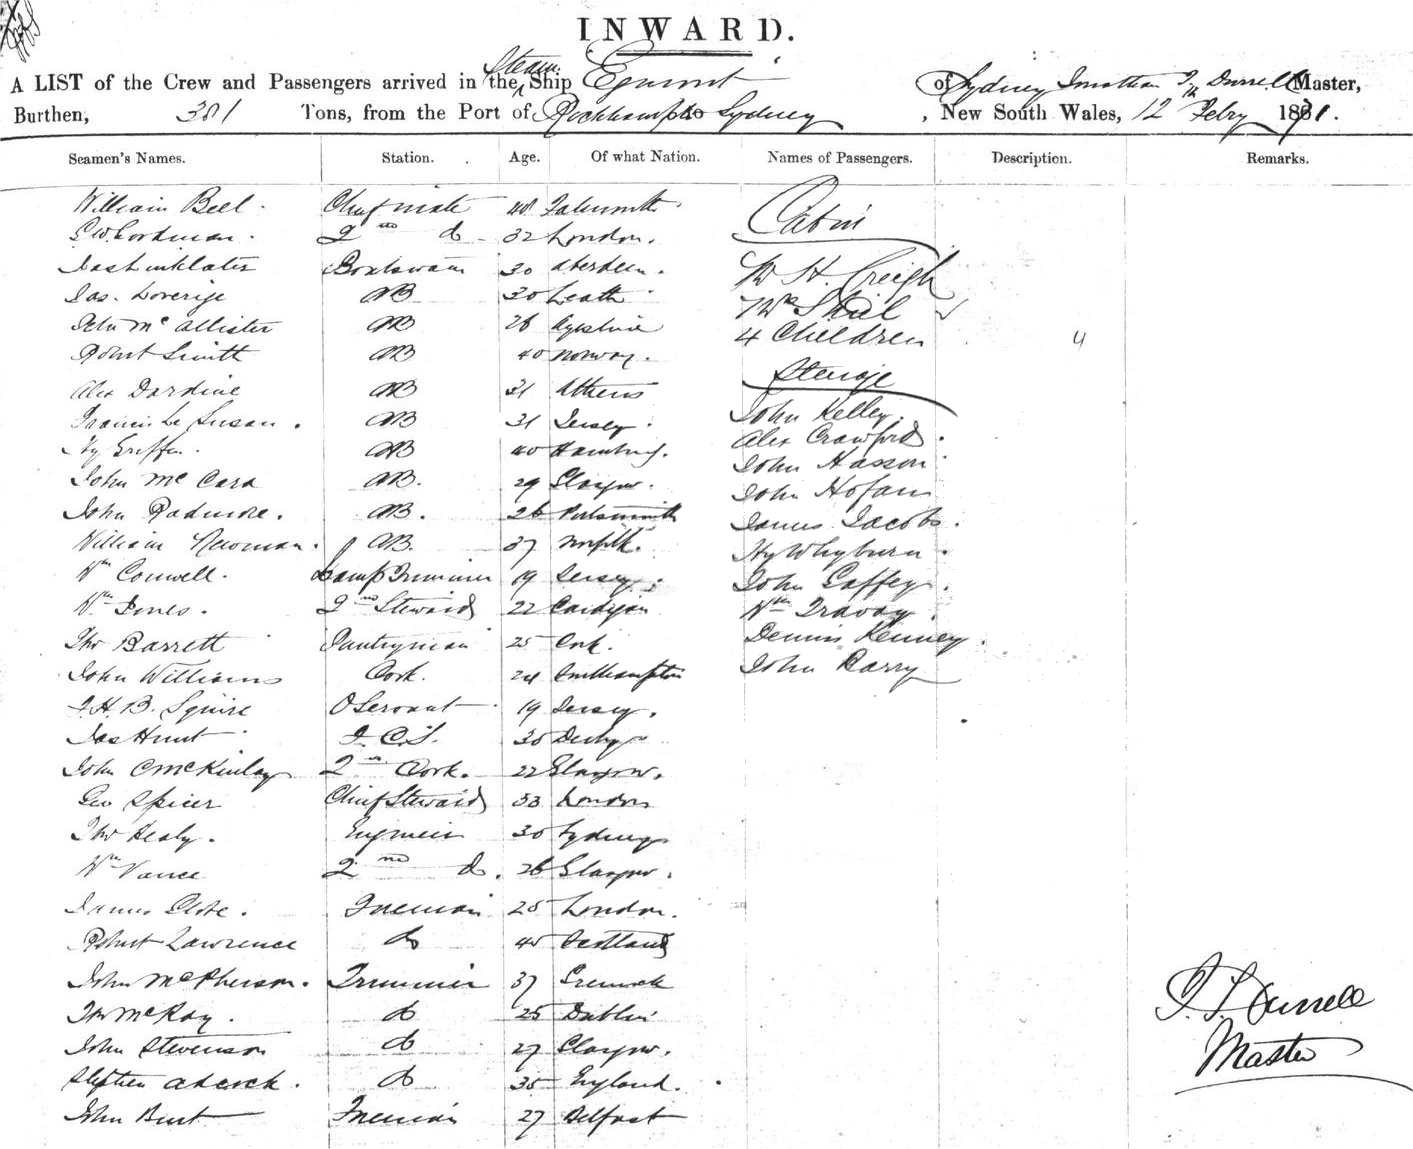 INWARD.
A LIST of the Crew and Passengers arrived in the Steam Ship Egmont of Sydney Jonathan T. Durrell Master,
Burthen, 381 Tons, from the Port of Rockhampton to Sydney, New South Wales, 12 Febry 1871.
Seamen's Names. Station. Age. Of what Nation. Names of Passengers. Description. Remarks.
William Bell. Chief mate 48 Falmouth
2nd do 32 London.
Jas Linklater Boatswain 30 Aberdeen.
Jas. Loverige AB 30 Leath
McAllister AB 26 Ayrshire
Robert Smith AB 40 Norway.
Alex AB 31 Athens
Francis Le Susan. AB 31 Jersey.
Hy Griffin. AB 40 Hamburg.
John McCara AB. 29 Glasgow.
John Radmore. AB. 26 Portsmouth
William Newman. AB. 37 Norfolk.
Wm Conwell. Lamp Trimmer 19 Jersey.
Wm Jones. 2nd Steward 22 Cardigan
Thos Barrett Pantryman 25 Cork.
John Williams Cook. 24 Southampton
J. H. B. Squire O Servant 19 Jersey.
Jas Hunt F.C.S. 30 Derby
John McKinlay 2nd Cook. 22 Glasgow.
Geo Spicer Chief Steward 33 London
Thos Healy. Engineer 30 Sydney
Wm Vance 2nd do. 26 Glasgow.
James Fireman 25 London.
Robert Lawrence do 45 Scotland
John McPherson. Trimmer 37 Greenock
Thos McKay. do 25 Dublin
John Stevenson do 27 Glasgow.
Stephen Adcock. do 35 England.
John Burt Fireman 27 Belfast
Cabin
Mr H. Creigh
Mrs Shiel
4 Children 4
Steerage
John Kelley.
Alex Crawford.
John Hasson
John Hofan
James Jacobs.
Hy Whyburn.
John Gaffey.
Wm Travay.
Dennis Kenney.
John Barry
J. T. Durrell
Master